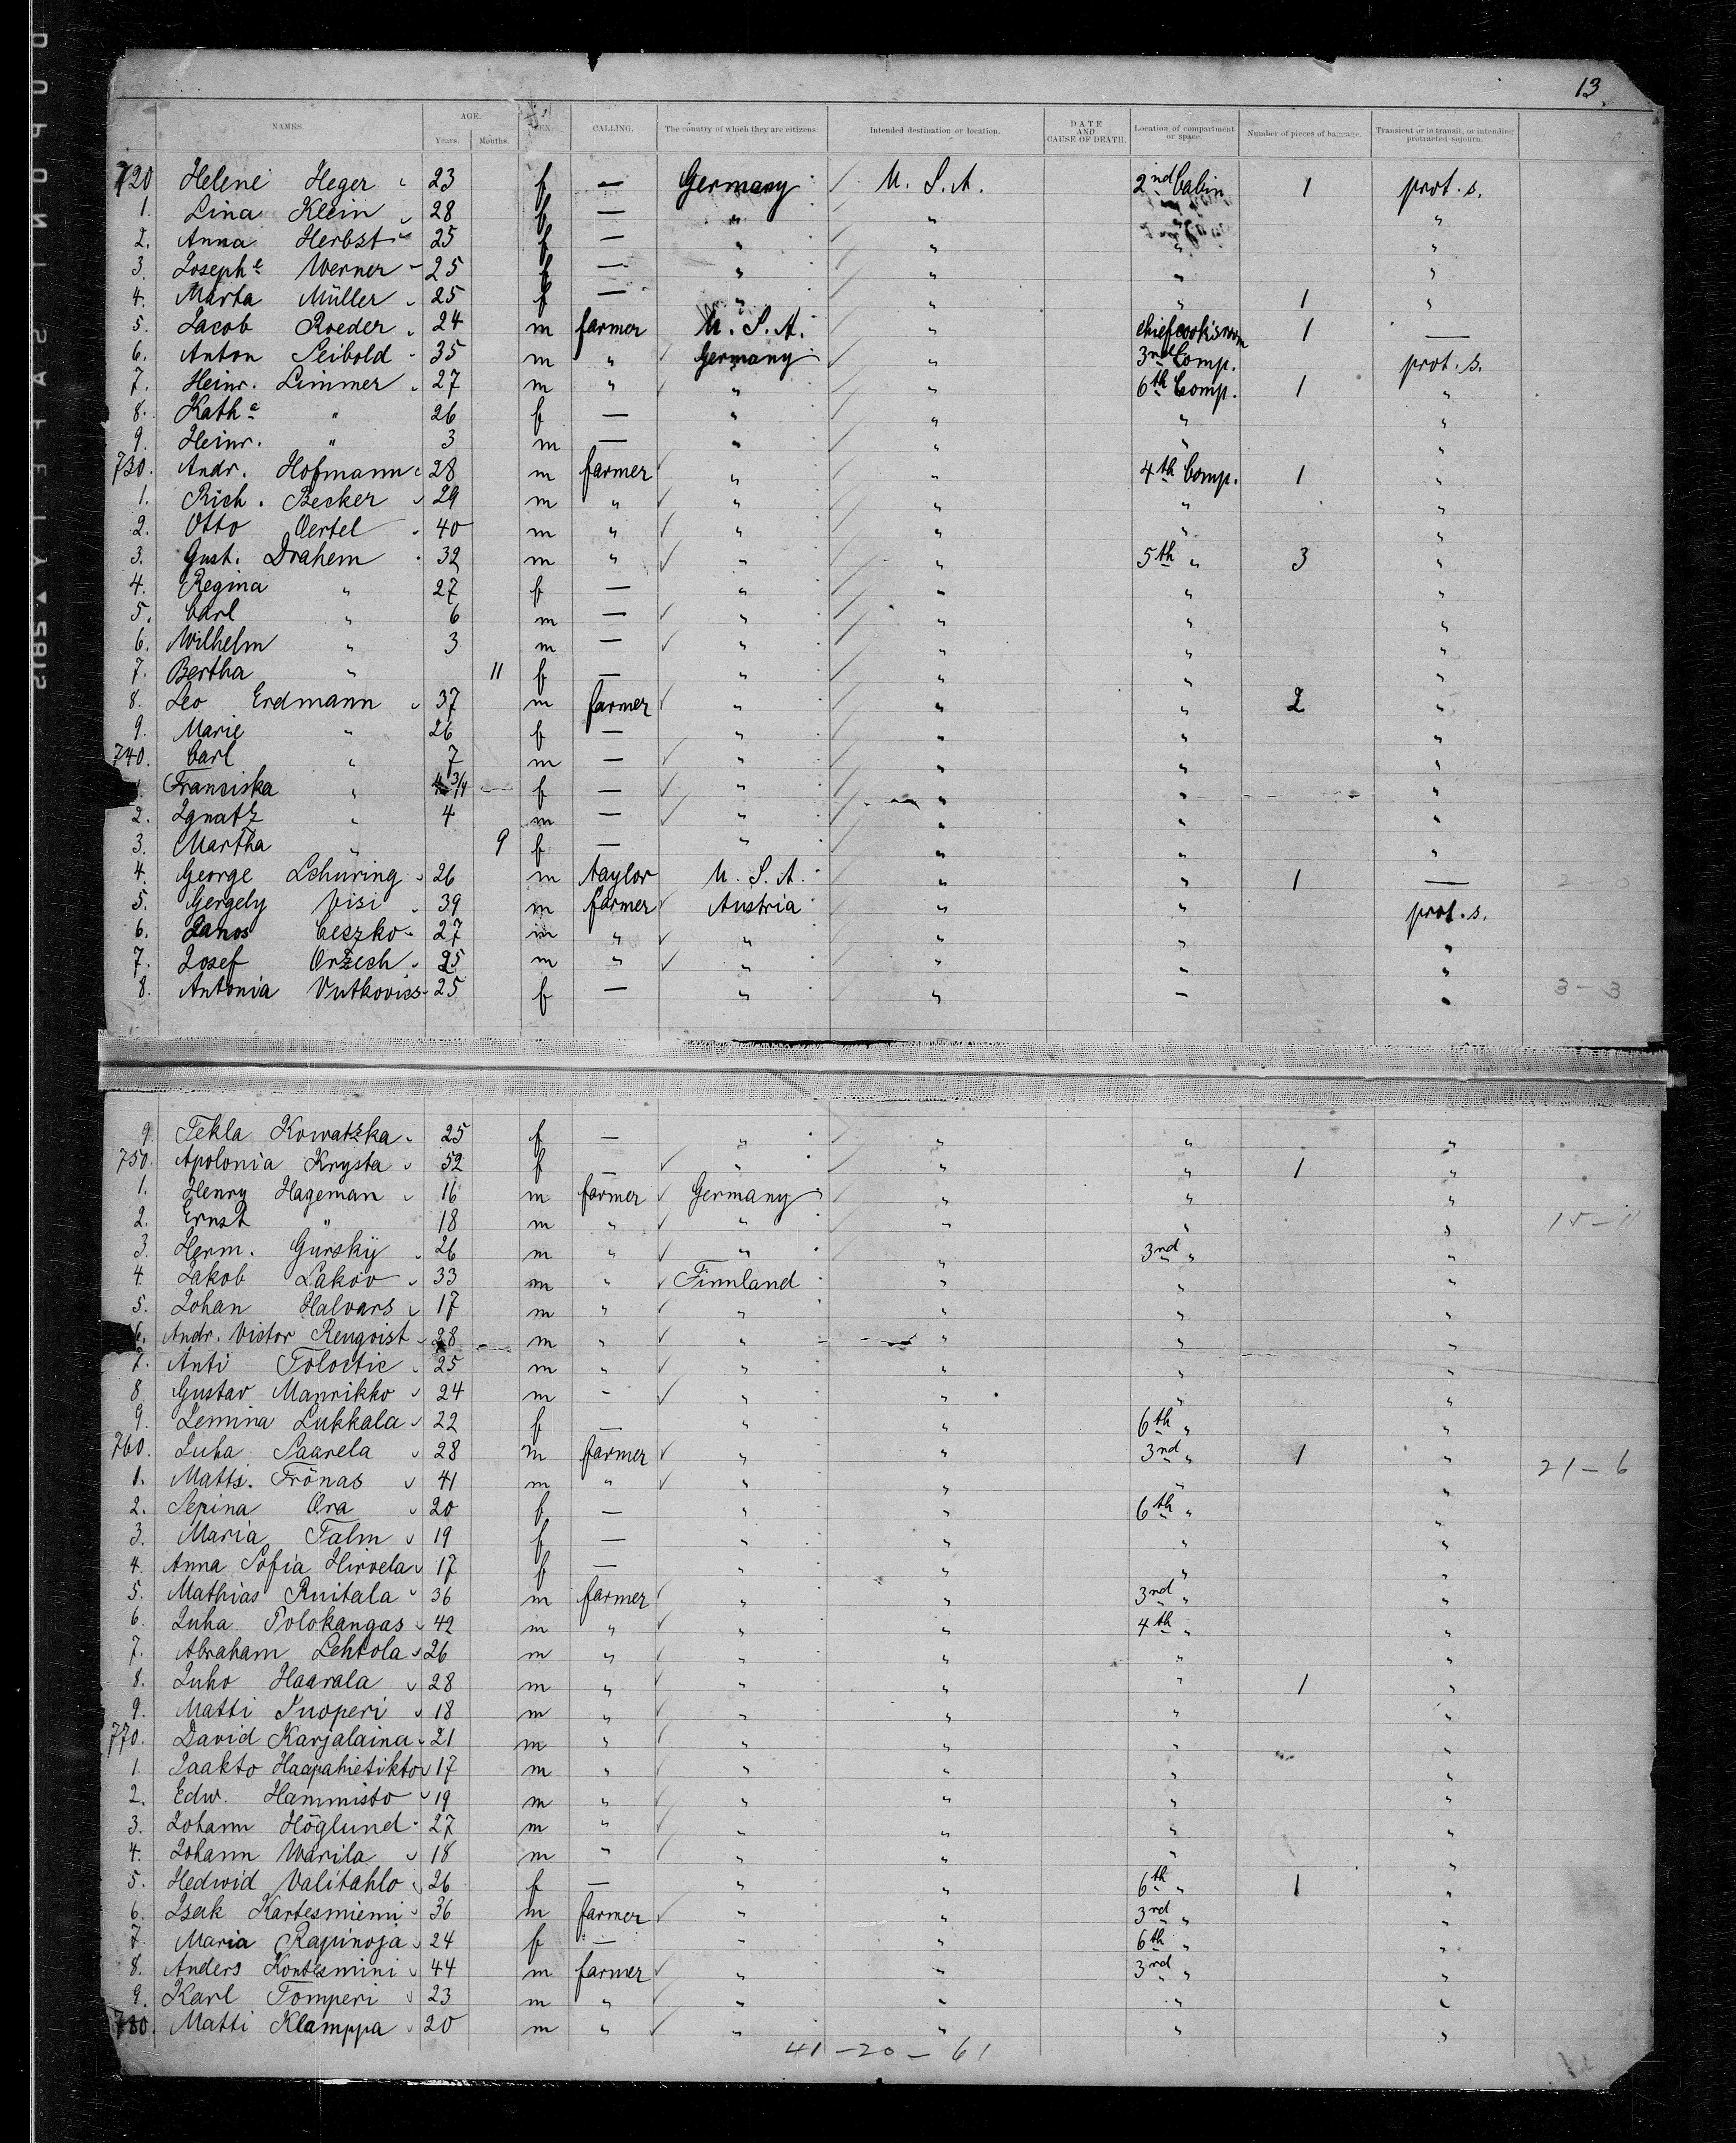 13.
NAMES. AGE. Years. Months. SEX. CALLING. The country of which they are citizens. Intended destination or location. DATE AND CAUSE OF DEATH. Location of compartment or space. Number of pieces of baggage. Transient or in transit, or intending protracted sojourn.
720 Helene Heger 23 f — Germany U. S. A. 2nd Cabin 1 prot. s.
1. Lina Klein 28 f — " " " "
2. Anna Herbst 25 f — " " " "
3. Josephe Werner 25 f — " " " "
4. Marta Müller 25 f — " " " 1 "
5. Jacob Roeder 24 m farmer U. S. A. " chiefcook'sroom 1 —
6. Anton Seibold 35 m " Germany " 3rd Comp. prot. s.
7. Heinr. Limmer 27 m " " " 6th Comp. 1 "
8. Kathe " 26 f — " " " "
9. Heinr. " 3 m — " " " "
730. Andr. Hofmann 28 m farmer " " 4th Comp. 1 "
1. Rich. Becker 29 m " " " " "
2. Otto Oertel 40 m " " " " "
3. Gust. Drahem 32 m " " " 5th " 3 "
4. Regina " 27 f — " " " "
5. Carl " 6 m — " " " "
6. Wilhelm " 3 m — " " " "
7. Bertha " 11 f — " " " "
8. Leo Erdmann 37 m farmer " " " 2 "
9. Marie " 26 f — " " " "
740. Carl " 7 m — " " " "
1. Franciska " 4 3/4 f — " " " "
2. Ignatz " 4 m — " " " "
3. Martha " 9 f — " " " "
4. George Schuring 26 m taylor U. S. A. " " 1 —
5. Gergely Visi 39 m farmer Austria " " prot. s.
6. Janos Ceszko 27 m " " " " "
7. Josef Orzech 25 m " " " " "
8. Antonia Vutkovics 25 f — " " — " 3-3
9. Tekla Kowatzka 25 f — " " " "
750. Apolonia Krysta 52 f — " " " 1 "
1. Henry Hageman 16 m farmer Germany " " "
2. Ernst " 18 m " " " " " 15-11
3. Herm. Gurskij 26 m " " " 3rd " "
4. Jakob Lakov 33 m " Finnland " " "
5. Johan Halvars 17 m " " " " "
6. Andr. Victor Renqvist 28 m " " " " "
7. Anti 25 m " " " " "
8. Gustav Manrikko 24 m " " " " "
9. Lemina Lukkala 22 f — " " 6th " "
760. Juha Saarela 28 m farmer " " 3rd " 1 " 21-6
1. Matts. Trönas 41 m " " " " "
2. Sepina Ora 20 f — " " 6th " "
3. Maria Talm 19 f — " " " "
4. Anna Sofia Hirvela 17 f — " " " "
5. Mathias Ruitala 36 m farmer " " 3rd " "
6. Juha Polokangas 42 m " " " 4th " "
7. Abraham Lehtola 26 m " " " " "
8. Juho Haarala 28 m " " " " 1 "
9. Matti Inoperi 18 m " " " " "
770. David Karjalaina 21 m " " " " "
1. Jaakto Haapahietikto 17 m " " " " "
2. Edw. Hammisto 19 m " " " " "
3. Johann Höglund 27 m " " " " "
4. Johann Warila 18 m " " " " "
5. Hedwid Valitahlo 26 f — " " 6th " 1 "
6. Isak Kartesmiemi 36 m farmer " " 3rd " "
7. Maria Rapinoja 24 f — " " 6th " "
8. Anders Kontesmini 44 m farmer " " 3rd " "
9. Karl Tomperi 23 m " " " " "
780. Matti Klamppa 20 m " " " " "
41-20-61